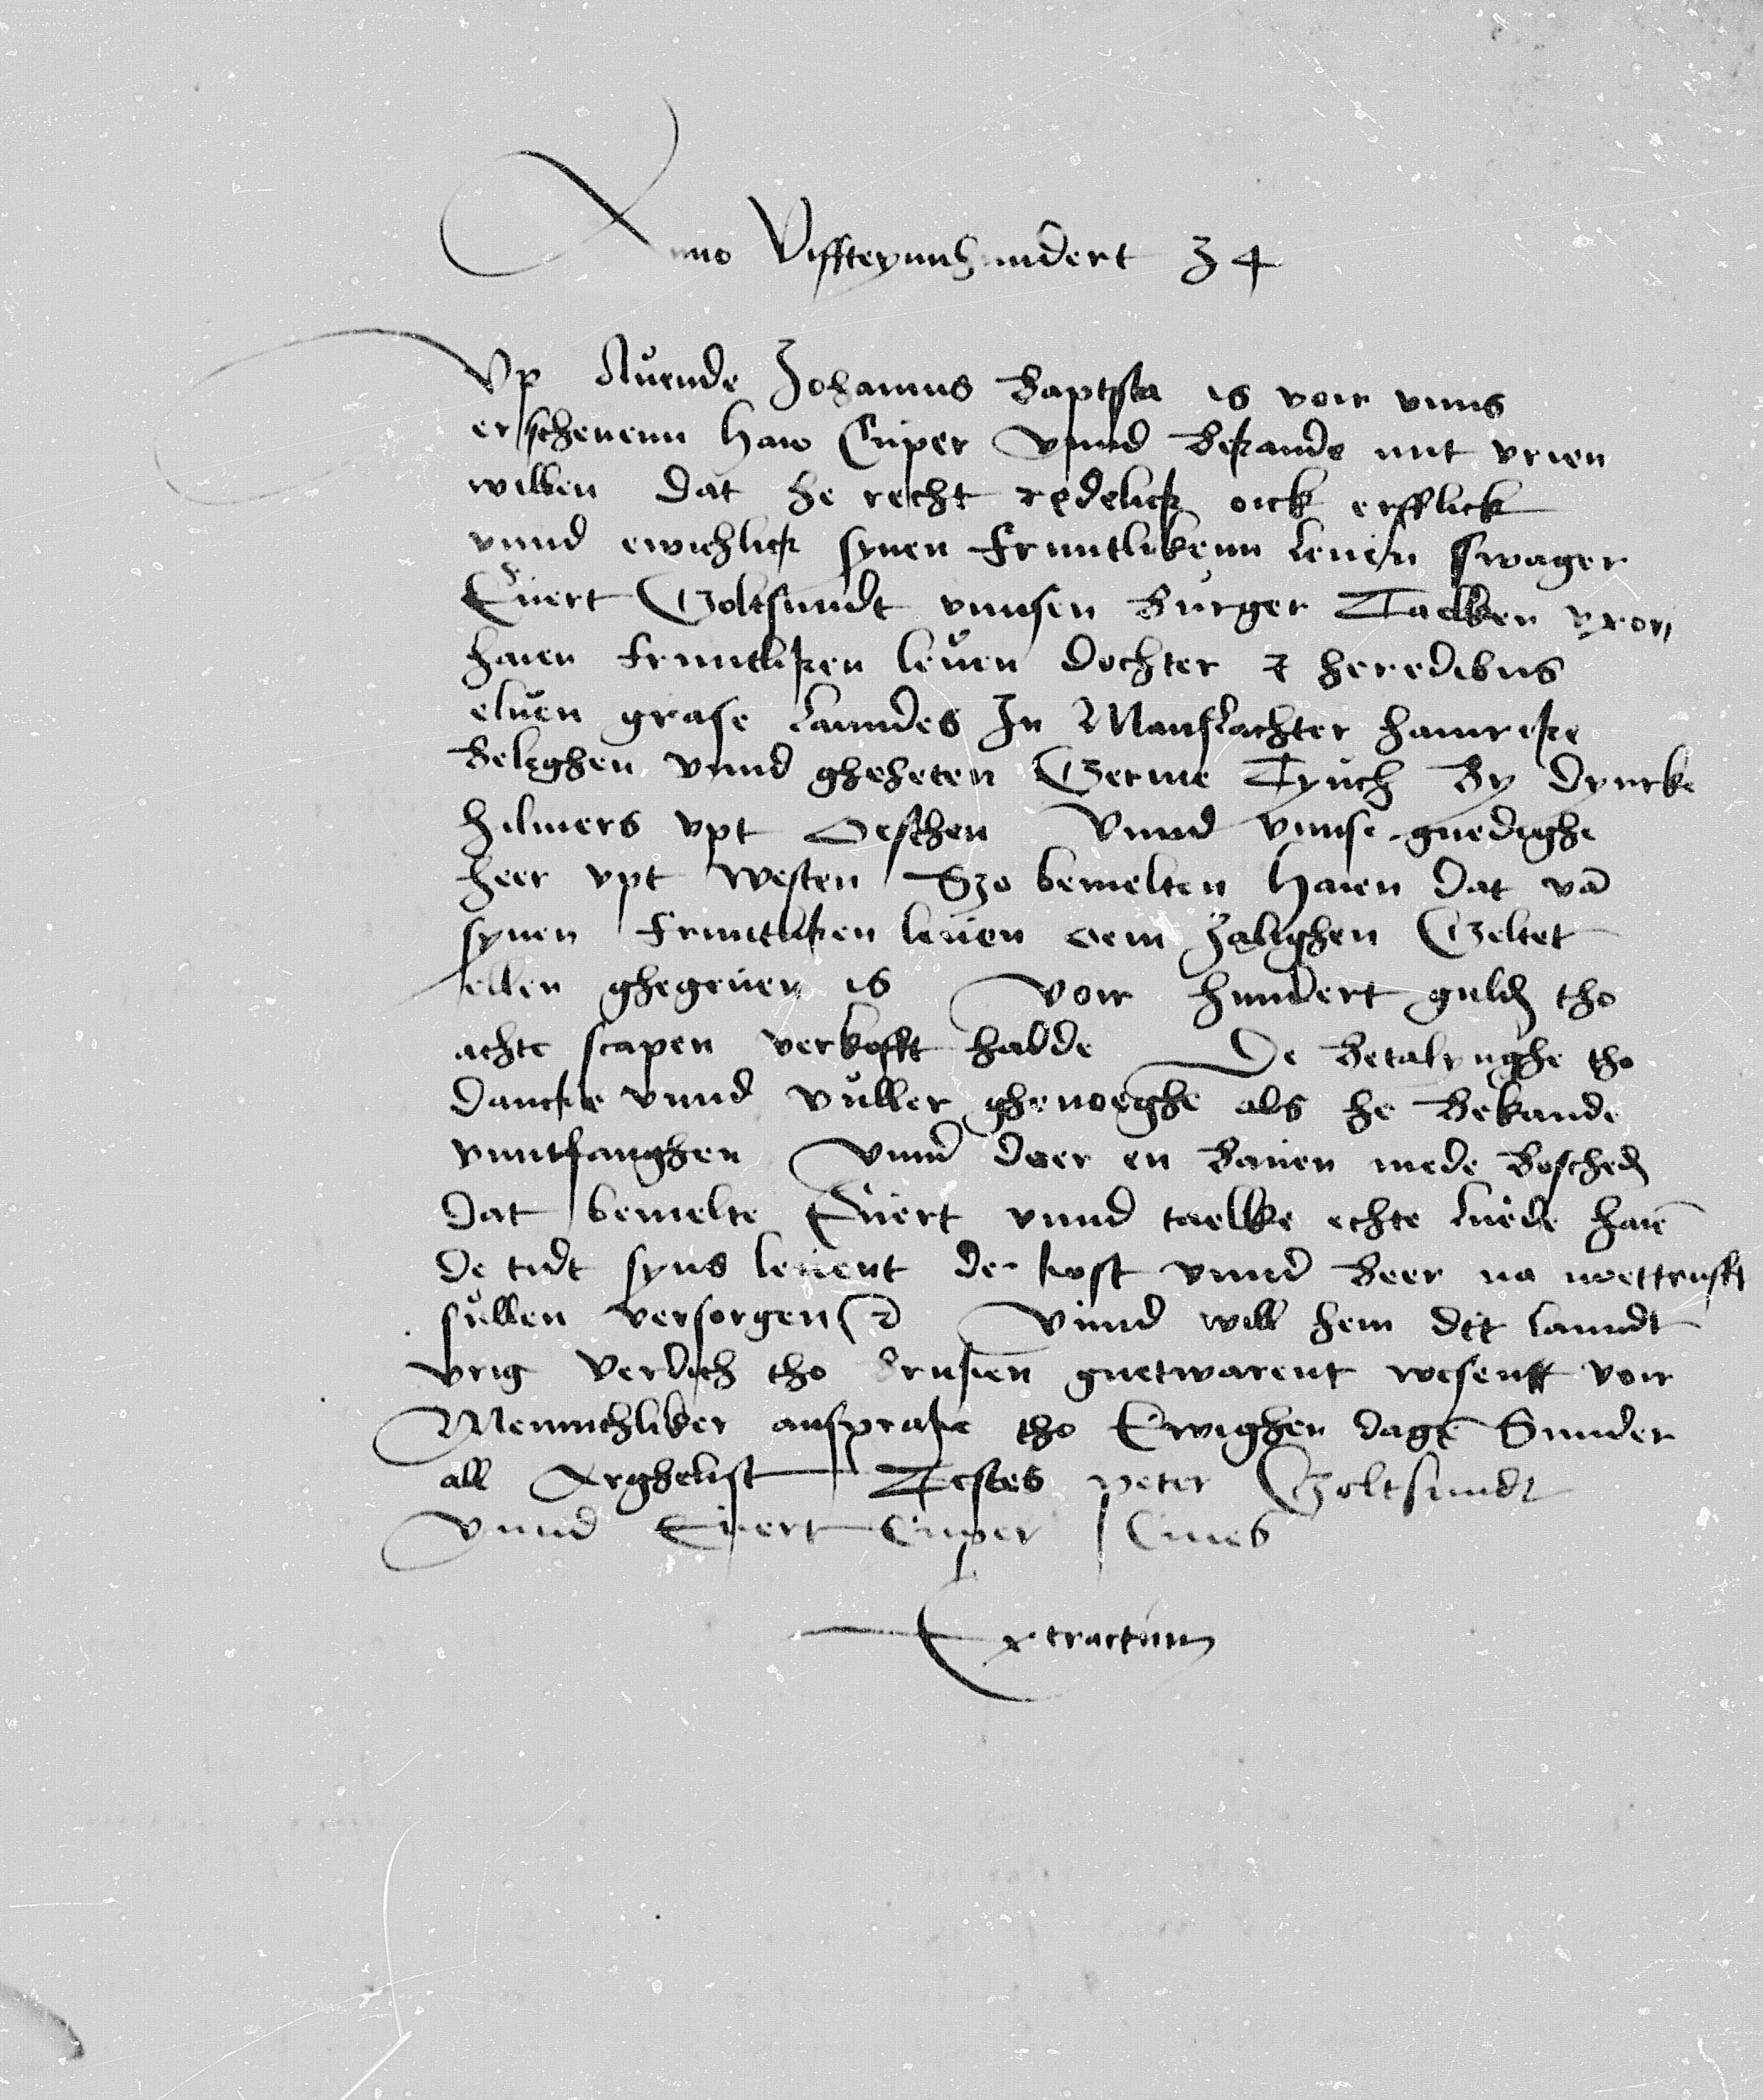 Anno Viffteynnhundert 34
Vp Auende Johannis Baptista is voir vnns
erschenenn Haio Cuper Vnnd Bekande mit vrien
willen dat he recht redelick oick erfflick
vnnd ewichlick synen fruntlikenn leuen swager
Euert Goltsmidt vnnsen Burger Taelken vxori
haien fruntliken leuen dochter et heredibus
eluen grase Lanndes In Manslachter hamrike
Beleghen vnnd gheheten Germe Tyuch By dyurke
hilmers vpt Oesthen Vnnd vnnse gnedighe
heer vpt westen Szo bemelten Haien dat vā
synen fruntliken leuen oem Zalighen Geltet
ellen ghegeuen is voir hundert guld tho
achte scapen verkofft hadde De Betalynghe tho
dancke vnnd vuller ghenoeghe als he Bekande
vnntfanghen Vnnd daer en Bauen mede Bescheden
dat bemelte Euert vnnd taelke echte luede haiē
de tidt syns leuent de kost vnnd Beer na noettrufft
sullen versorgen Vnnd will hem dit lanndt
vrig verlich tho guetwarent wesenn voir
Mennichliker ansprake tho Ewighen dagē Sunder
all Arghelist Testes peter Goltsmidt
Vnnd Euert Cuper Ciues
Extractum